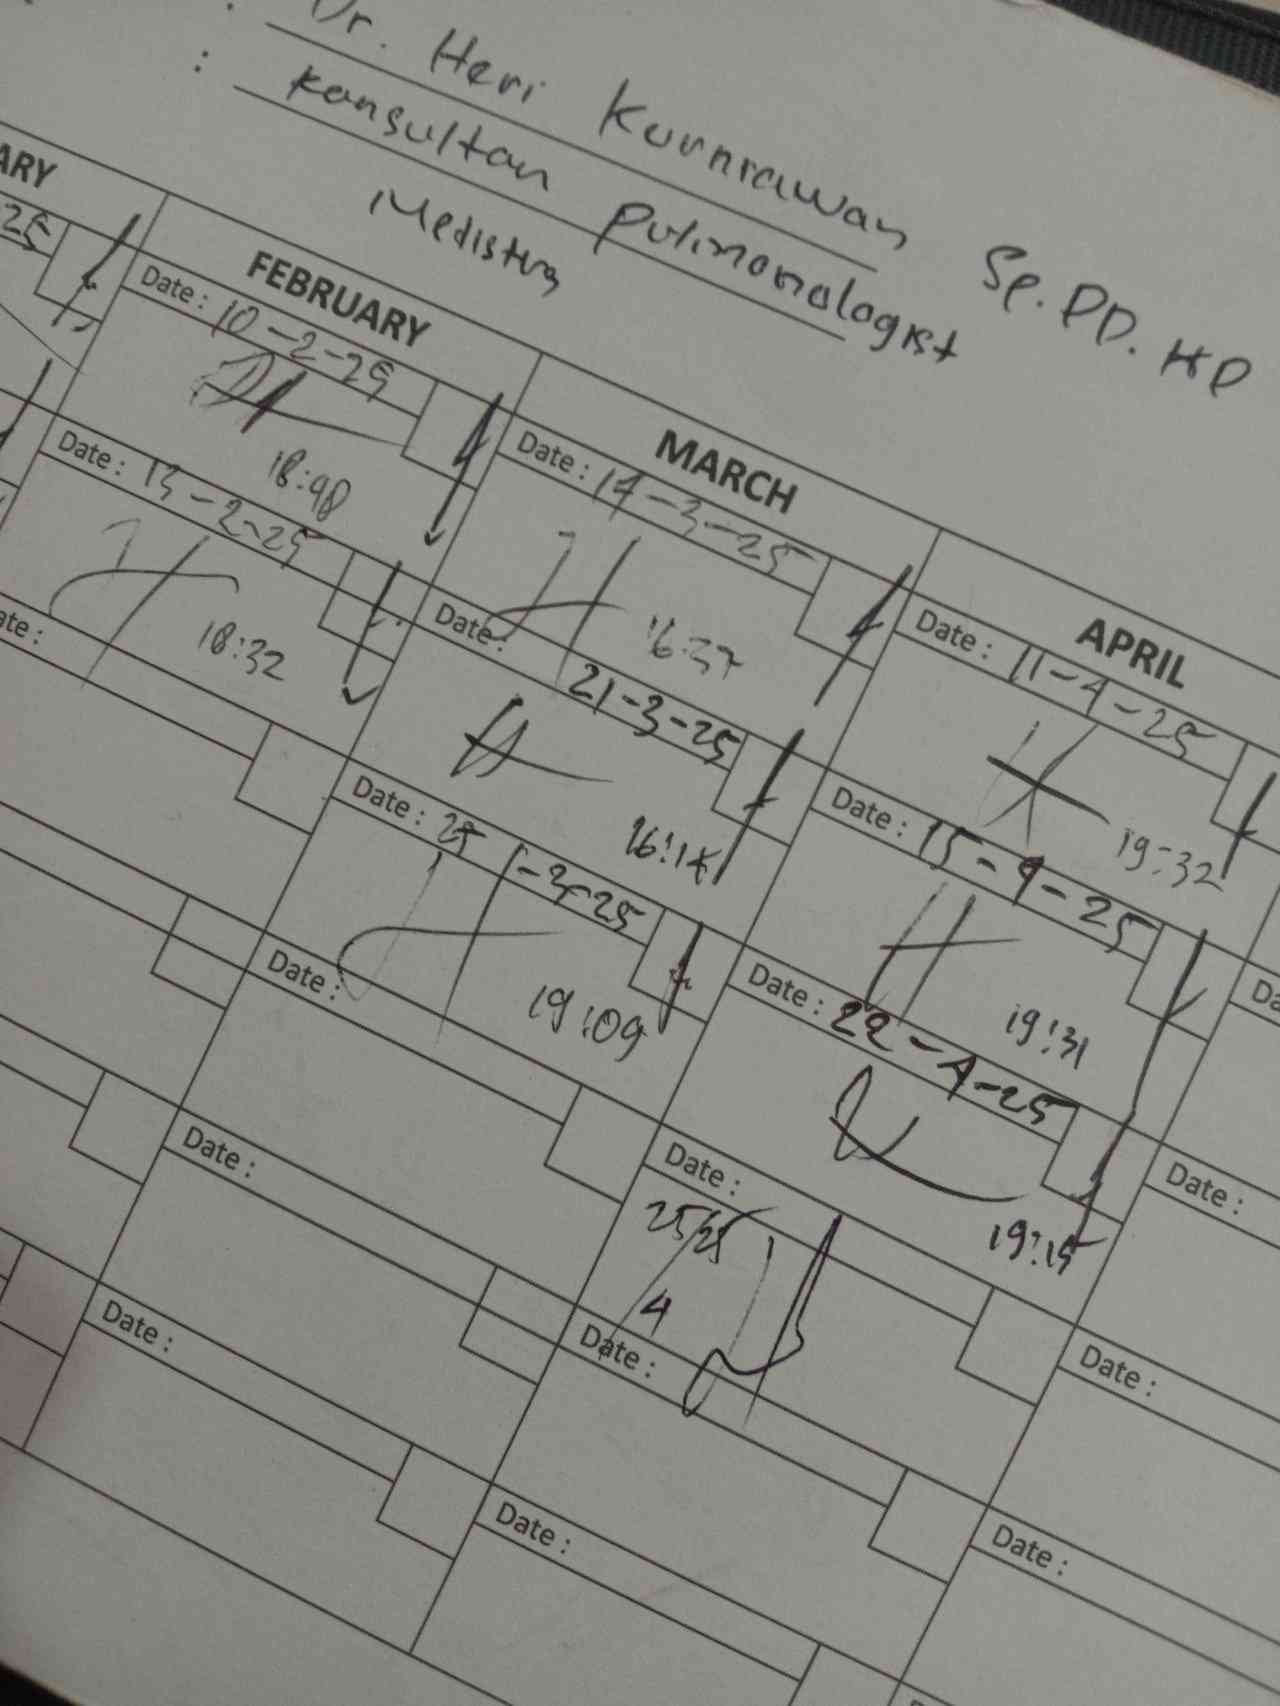 : Dr. Heri Kurniawan Sp.PD. KP
: Konsultan Pulmonologist
Medistra
ARY
FEBRUARY
MARCH
APRIL
25
Date : 10-2-25
18:48
Date : 13-2-25
18:32
ate :
Date :
Date : 14-3-25
16:37
Date : 21-3-25
16:14
Date : -3-25
19:09
Date :
Date :
Date :
Date : 11-4-25
19:32
Date : 15-4-25
19:31
Date : 22-4-25
19:15
Date :
25/25
4
Date :
Date :
Da
Date :
Date :
Date :